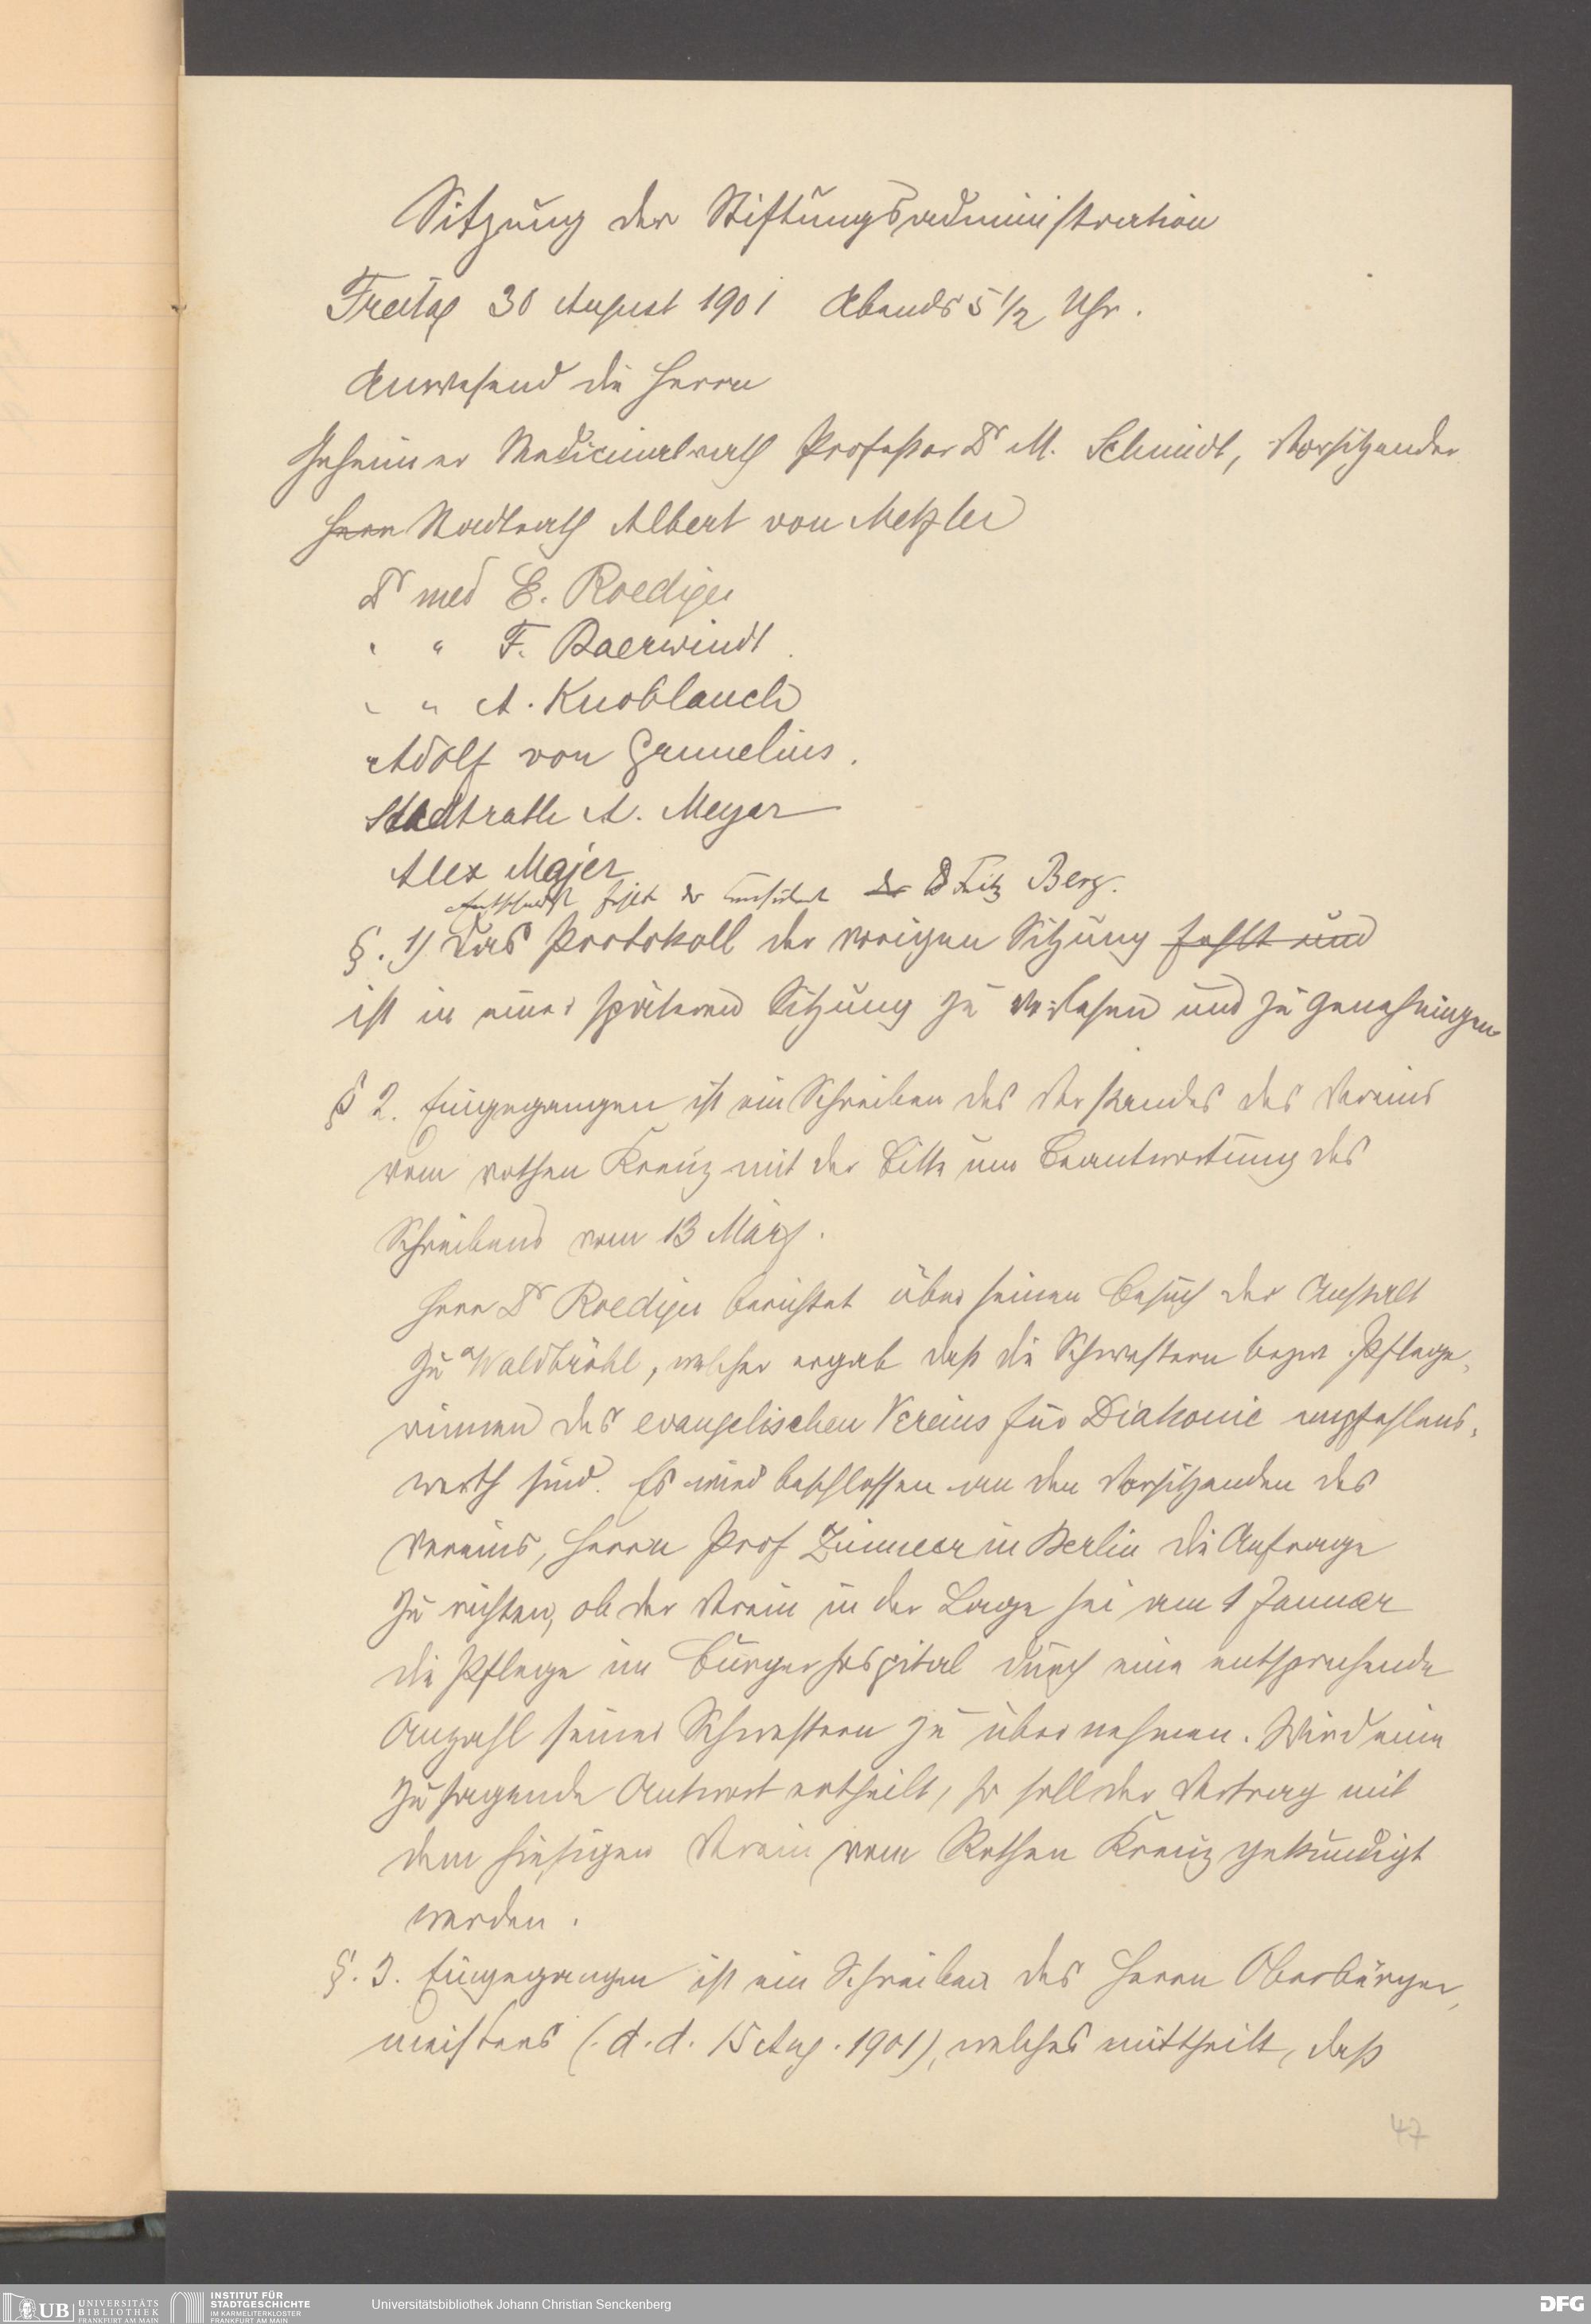 Sitzung der Stiftungsadministration
Freitag 30 August 1901 Abends 5 1/2 Uhr.
Anwesend die Herrn
Geheimer Medicinalrath Professor Dr M. Schmidt, Vorsitzender
Herr Stadtrath Albert von Metzler
Dr med E. Roediger
" " F. Baerwindt.
" " A. Knoblauch
Adolf von Grunelius.
Stadtrath A. Meyer
Alex Majer
Entschuldigt fehlt der der Dr Fritz Berg.
§. 1) Das Protokoll der vorigen Sitzung fehlt und
ist in einer späteren Sitzung zu verlesen und zu genehmigen
§ 2. Eingegangen ist ein Schreiben des Vorstandes des Vereins
vom rothen Kreuz mit der Bitte um Beantwortung des
Schreibens vom 13 März.
Herr Dr Roediger berichtet über seinen Besuch der Anstalt
zu Waldbröhl, welcher ergab daß die Schwestern bezw. Pflege-
rinnen des evangelischen Vereins für Diakonie empfehlens-
werth sind. Es wird beschlossen an den Vorsitzenden des
Vereins, Herrn Prof Zimmer in Berlin die Anfrage
zu richten, ob der Verein in der Lage sei am 1 Januar
die Pflege im Bürgerhospital durch eine entsprechende
Anzahl seiner Schwestern zu übernehmen. Wird eine
zusagende Antwort ertheilt, so soll der Vertrag mit
dem hiesigen Verein vom Rothen Kreuz gekündigt
werden.
§. 3. Eingegangen ist ein Schreiben des Herrn Oberbürger-
meisters (d. d. 15 Aug. 1901), welches mittheilt, daß
47
UB UNIVERSITÄTS
BIBLIOTHEK
FRANKFURT AM MAIN
INSTITUT FÜR
STADTGESCHICHTE
IM KARMELITERKLOSTER
FRANKFURT AM MAIN
Universitätsbibliothek Johann Christian Senckenberg
DFG